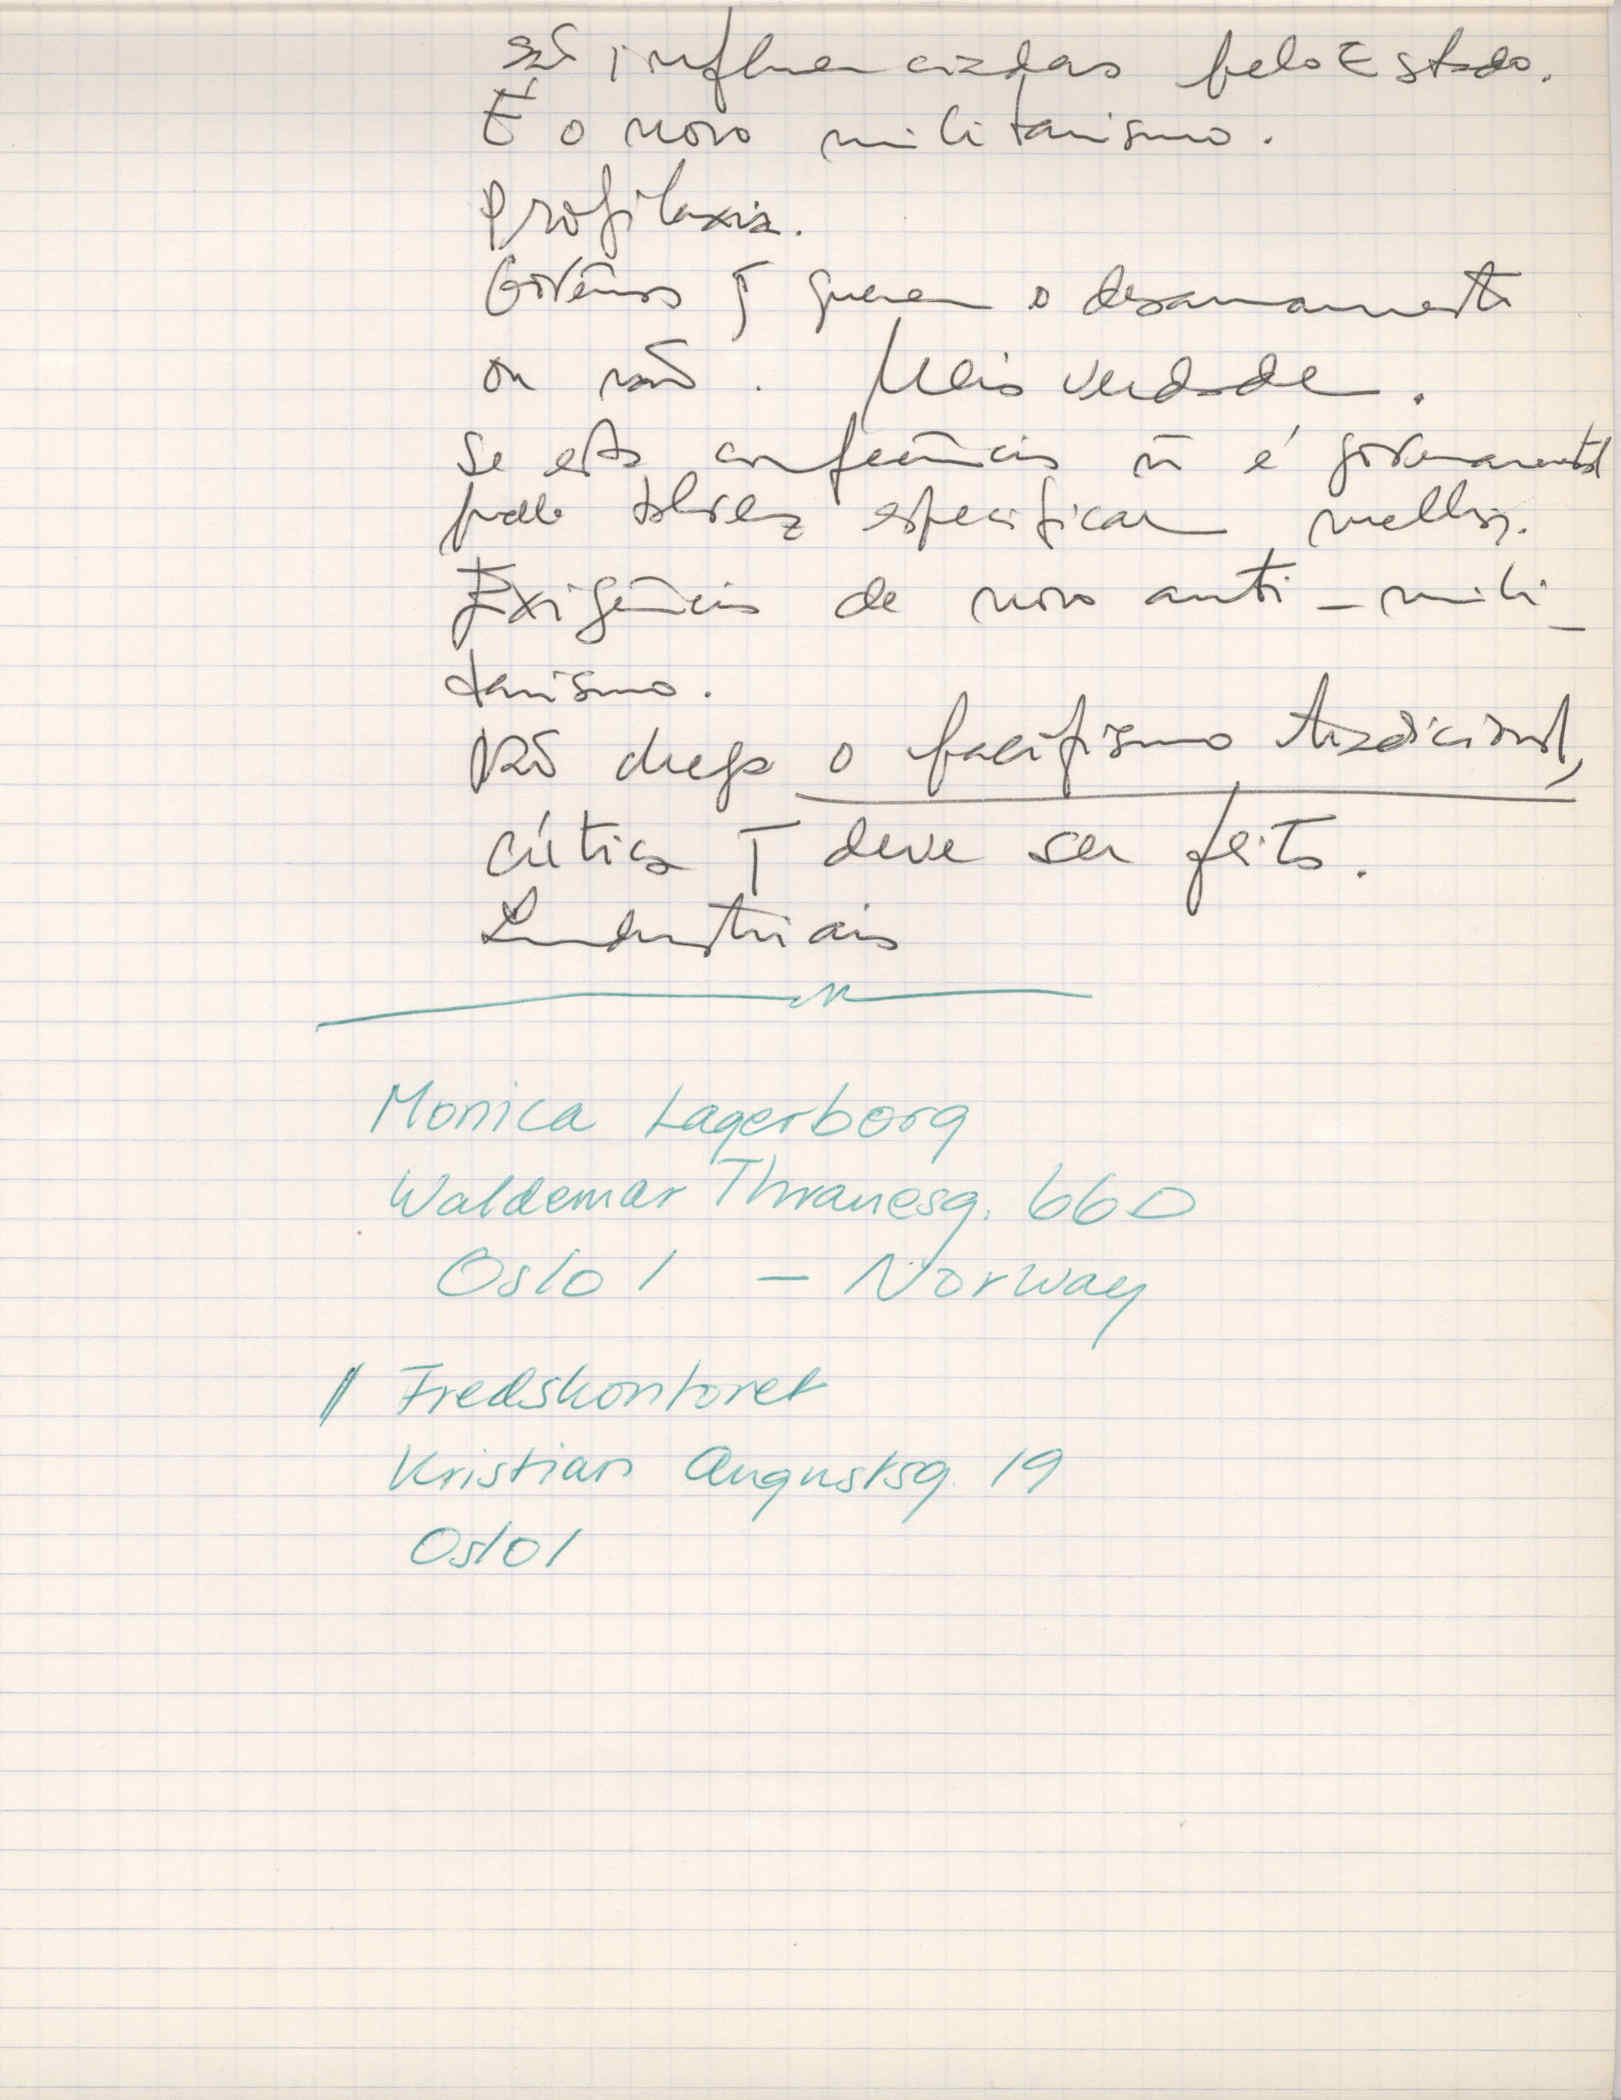 são influenciadas pelo Estado.
É o novo militarismo.
Profilaxia.
Govêrnos q̄ querem o desarmamento
ou não. Meia verdade.
Se esta conferência ñ é governamental
pode talvez especificar melhor.
Exigência de novo anti-mili-
tarismo.
Não chega o pacifismo tradicional,
crítica q̄ deve ser feita.
Industriais
Monica Lagerborg
Waldemar Thranesg. 66D
Oslo 1 - Norway
// Fredskontoret
Kristian Augustsg. 19
Oslo 1